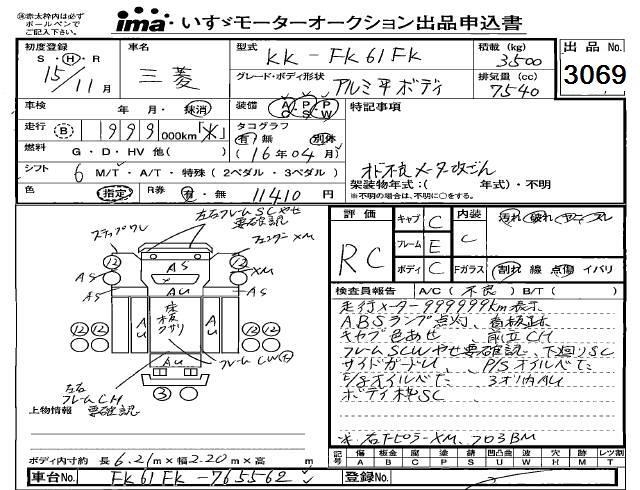 ※赤太枠内は必ず
ボールペンで
ご記入下さい。
ima いすゞモーターオークション出品申込書
初度登録
S・H・R
15/11月
車名
三菱
型式
KK-FK61FK
積載(kg)
3500
出品No.
3069
グレード・ボディ形状
アルミ平ボディ
排気量(cc)
7540
車検 年 月・抹消
装備 AC PS PW
特記事項
走行 B 1999 000km「火」
タコグラフ
有・無 別体
(16年04月)
燃料 G・D・HV 他( )
シフト 6 M/T・A/T・特殊(2ペダル・3ペダル)
オド不良メータ改ざん
架装物年式:( 年式)・不明
※不明の場合は、不明に○をする。
色 指定 R券 有・無 11410 円
左右フレームSCヤセ
要確認
ステップワレ
フェンダーXM
12 12
AS
AS
AS
XM
AU
AU
AU
床板
クサリ
AU
12 12
12 12
フレームCW
左右
フレームCH
要確認
3
上物情報
評価
RC
キャブ C
フレーム E
ボディ C
内装
C
汚れ・破れ
Fガラス 割れ 線 点傷 イバリ
検査員報告 A/C(不良)B/T( )
走行メーター999999km表示
ABSランプ点灯、
キャブ色あせ、前立CH
フレームSCWヤセ要確認、下廻りSC
サイドガードU、P/Sオイルもて、
オイルもて、3オリ内AU
ボディ枠SC
※右下ピラーXM、フロ3BM
ボディ内寸約 長6.21m×幅2.20m×高 m
記号 傷 A 板金 B 腐 C 塗 P 錆 S 凹凸曲 U 波 W 穴 H 跡 M レツ割 T
車台No. FK61FK-765562
登録No.